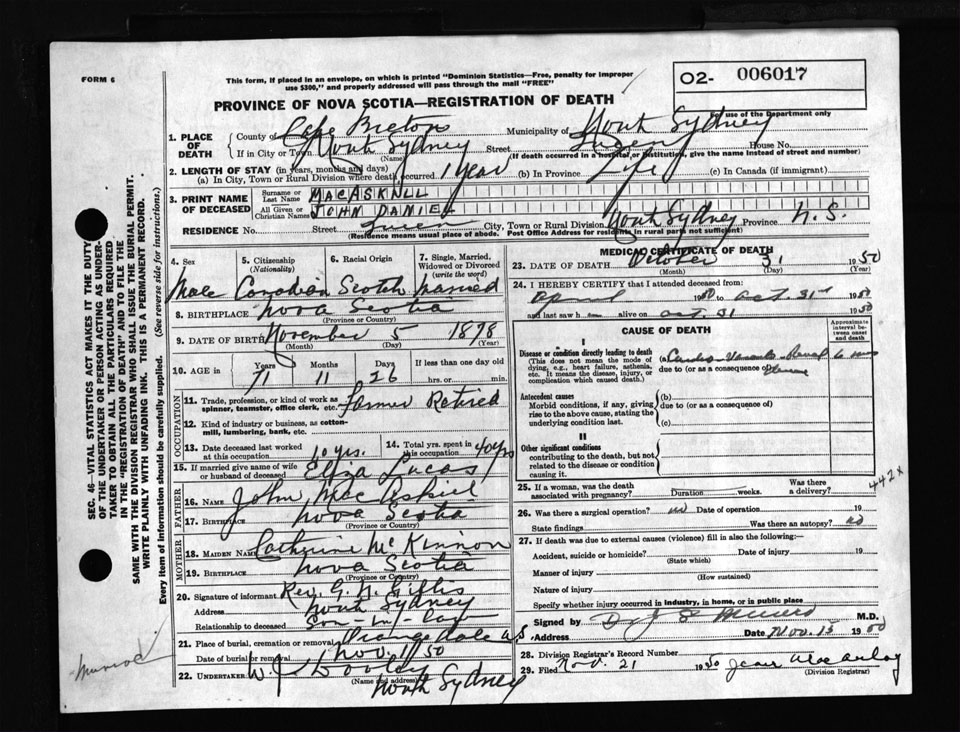 FORM 6
This form, if placed in an envelope, on which is printed "Dominion Statistics—Free, penalty for improper
use $300," and properly addressed will pass through the mail "FREE"
O2- 006017
For use of the Department only
PROVINCE OF NOVA SCOTIA—REGISTRATION OF DEATH
1. PLACE OF DEATH
County of Cape Breton Municipality of North Sydney
If in City or Town North Sydney Street House No.
(Name) (If death occurred in a hospital or institution, give the name instead of street and number)
2. LENGTH OF STAY (in years, months and days)
(a) In City, Town or Rural Division where death occurred 1 year (b) In Province Life (c) In Canada (if immigrant)
3. PRINT NAME OF DECEASED
Surname or Last Name MACASKILL
All Given or Christian Names JOHN DANIEL
RESIDENCE No. Street City, Town or Rural Division North Sydney Province N.S.
(Residence means usual place of abode. Post Office Address for residents in rural parts not sufficient)
4. Sex Male
5. Citizenship (Nationality) Canadian
6. Racial Origin Scotch
7. Single, Married, Widowed or Divorced (write the word) Married
8. BIRTHPLACE Nova Scotia
(Province or Country)
9. DATE OF BIRTH November 5 1878
(Month) (Day) (Year)
10. AGE in Years 71 Months 11 Days 26 If less than one day old hrs. or min.
OCCUPATION
11. Trade, profession, or kind of work as spinner, teamster, office clerk, etc. Farmer Retired
12. Kind of industry or business, as cotton-mill, lumbering, bank, etc.
13. Date deceased last worked at this occupation 10 yrs.
14. Total yrs. spent in this occupation 40 yrs
15. If married give name of wife or husband of deceased Eliza Lucas
FATHER
16. NAME John MacAskill
17. BIRTHPLACE Nova Scotia
(Province or Country)
MOTHER
18. MAIDEN NAME Catherine McKinnon
19. BIRTHPLACE Nova Scotia
(Province or Country)
20. Signature of informant Rev. G. N. Gillis
Address North Sydney
Relationship to deceased Son-in-law
21. Place of burial, cremation or removal Orangedale N.S.
Date of burial or removal Nov. 1/50
22. UNDERTAKER W. J. Dooley
(Name and address)
North Sydney
MEDICAL CERTIFICATE OF DEATH
23. DATE OF DEATH October 31 1950
(Month) (Day) (Year)
24. I HEREBY CERTIFY that I attended deceased from:
April 1950 to Oct. 31st 1950
and last saw him alive on Oct. 31 1950
CAUSE OF DEATH
Approximate interval between onset and death
I
Disease or condition directly leading to death
This does not mean the mode of dying, e.g., heart failure, asthenia, etc. It means the disease, injury, or complication which caused death.
Cardio-Vascular-Renal 6 mos
due to (or as a consequence of) Disease
Antecedent causes
Morbid conditions, if any, giving rise to the above cause, stating the underlying condition last.
(b)
due to (or as a consequence of)
(c)
II
Other significant conditions
contributing to the death, but not related to the disease or condition causing it.
25. If a woman, was the death associated with pregnancy? Duration weeks. Was there a delivery?
442x
26. Was there a surgical operation? no Date of operation 19
State findings Was there an autopsy? no
27. If death was due to external causes (violence) fill in also the following:—
Accident, suicide or homicide? Date of injury 19
(State which)
Manner of injury
(How sustained)
Nature of injury
Specify whether injury occurred in industry, in home, or in public place
Signed by M.D.
Address Date Nov. 15 1950
28. Division Registrar's Record Number
29. Filed Nov. 21 1950
(Division Registrar)
SEC. 46—VITAL STATISTICS ACT MAKES IT THE DUTY
OF THE UNDERTAKER OR PERSON ACTING AS UNDER-
TAKER TO OBTAIN ALL THE PARTICULARS REQUIRED
IN THE "REGISTRATION OF DEATH" AND TO FILE THE
SAME WITH THE DIVISION REGISTRAR WHO SHALL ISSUE THE BURIAL PERMIT.
WRITE PLAINLY WITH UNFADING INK. THIS IS A PERMANENT RECORD.
Every item of information should be carefully supplied. (See reverse side for instructions.)